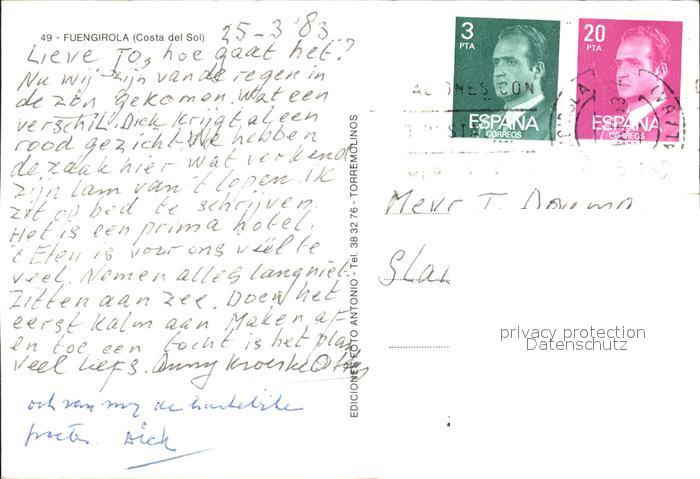 49 - FUENGIROLA (Costa del Sol)
25-3-'83
Lieve To, hoe gaat het?
Nu wij zijn van de regen in
de zon gekomen. Wat een
verschil. Dick krijgt al een
rood gezicht. We hebben
de zaak hier wat verkend
zijn lam van 't lopen. Ik
zit op bed te schrijven.
Het is een prima hotel.
't Eten is voor ons veel te
veel. Nemen alles lang niet.
Zitten aan zee. Doen het
eerst kalm aan. Maken af
en toe een tocht is het plan
veel liefs. Anny
ook van mij de hartelijke
groeten. Dick
EDICIONES FOTO ANTONIO - Tel. 38 32 76 - TORREMOLINOS
3
PTA
ESPAÑA
CORREOS
20
PTA
ESPAÑA
CORREOS
CON
Mevr T
privacy protection
Datenschutz